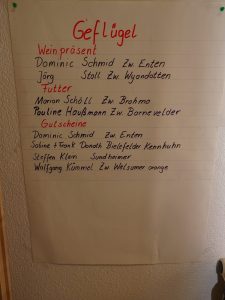 Geflügel
Weinpräsent
Dominic Schmid Zw. Enten
Jörg Stoll Zw. Wyandotten
Futter
Marion Schöll Zw. Brahma
Pauline Haußmann Zw. Barnevelder
Gutscheine
Dominic Schmid Zw. Enten
Sabine + Frank Donath Bielefelder Kennhuhn
Steffen Klein Sundheimer
Wolfgang Kümmel Zw Welsumer orange